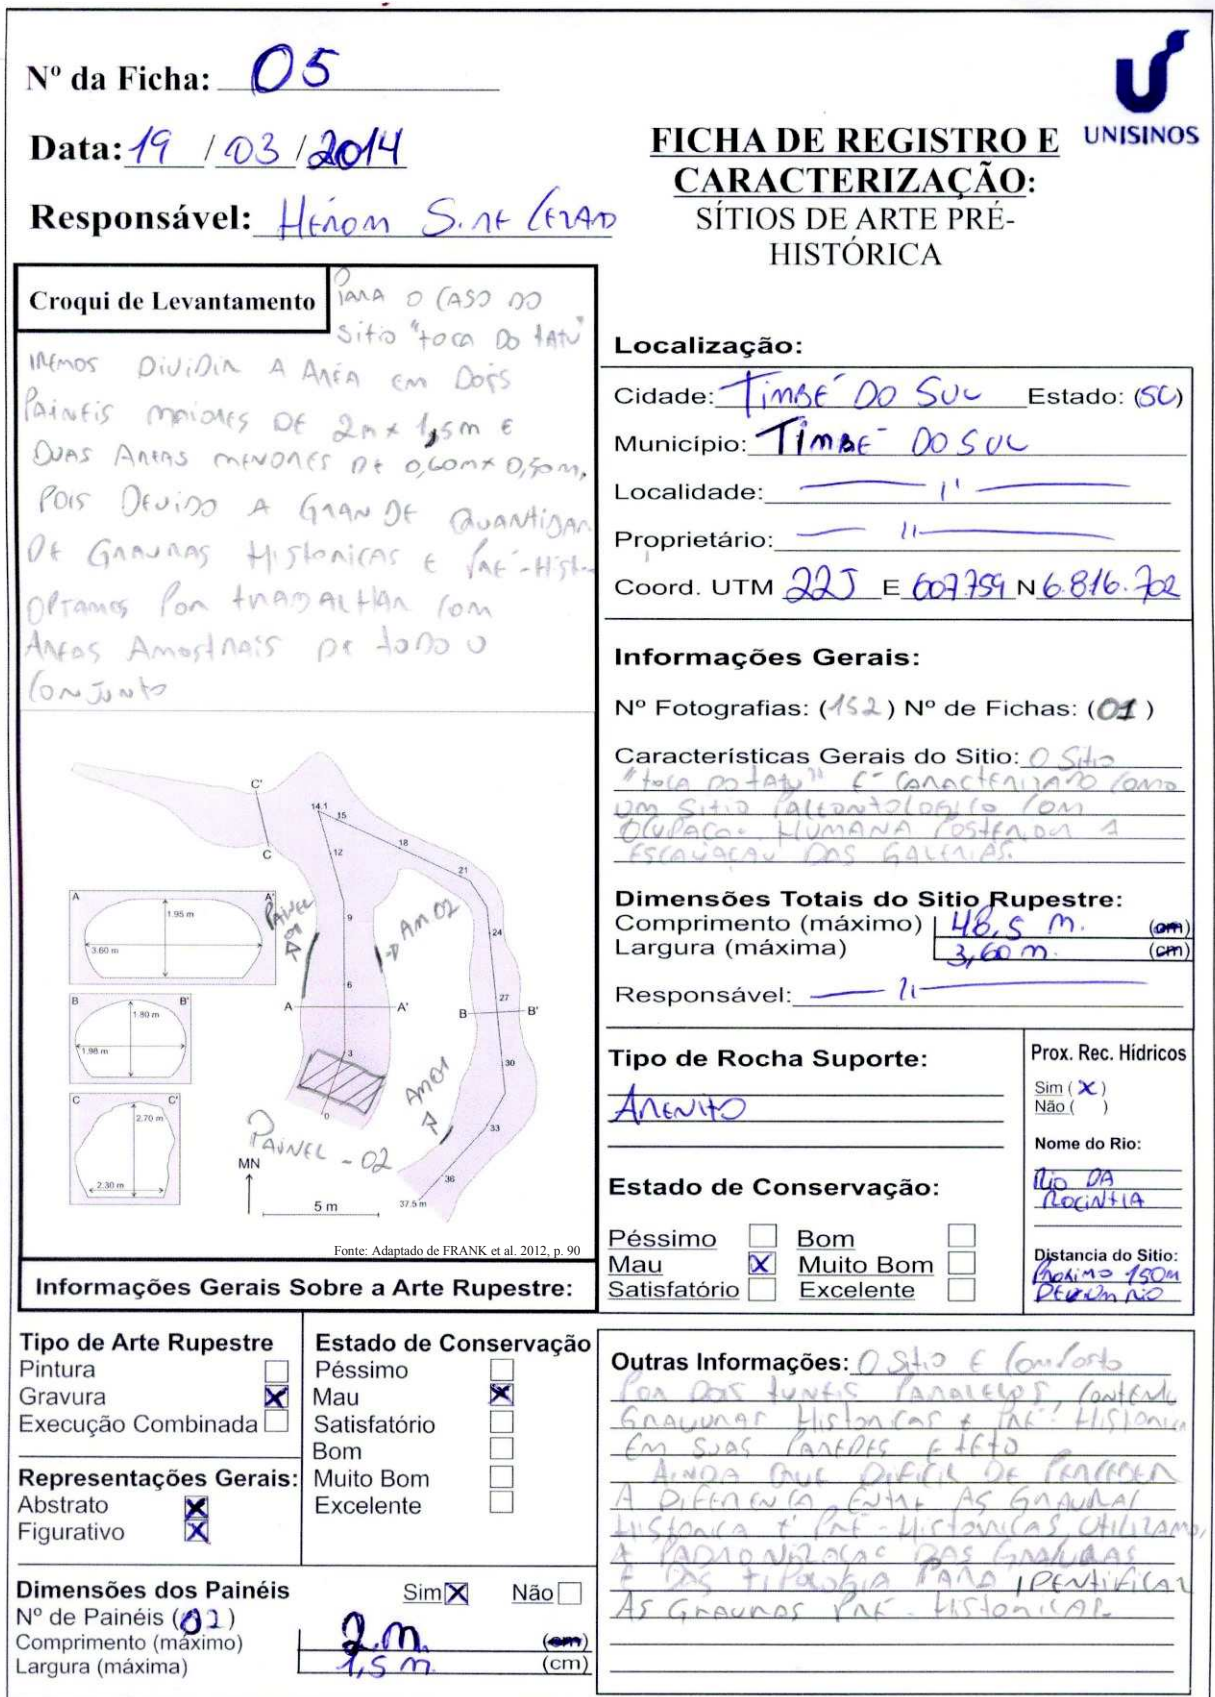 Nº da Ficha: 05
Data: 19 / 03 / 2014
Responsável:
UNISINOS
FICHA DE REGISTRO E
CARACTERIZAÇÃO:
SÍTIOS DE ARTE PRÉ-
HISTÓRICA
Croqui de Levantamento
PARA O CASO DO
Sitio "toca Do tatu"
IREMOS DiViDiR A AREA EM DOIS
PAINEIS MAIORES DE 2m x 1,5m E
DUAS AREAS MENORES DE 0,60m x 0,50m,
POIS DEVIDO A GRANDE QUANTIDA
DE GRAVURAS HISTORICAS E PRÉ-HIST
OPTAMOS POR TRABALHAR COM
AREAS AMOSTRAIS DE TODO O
CONJUNTO
C'
14.1
15
12
C
18
21
A
A'
1.95 m
3.60 m
PAINEL
01
AM 02
9
24
6
A
A'
27
B
B'
B
B'
1.80 m
1.98 m
3
30
AM01
0
C
C'
2.70 m
2.30 m
33
PAINEL - 02
MN
5 m
36
37.5 m
Fonte: Adaptado de FRANK et al. 2012, p. 90
Localização:
Cidade: TIMBÉ DO SUL Estado: (SC)
Município: TIMBÉ DO SUL
Localidade: — 11 —
Proprietário: — 11 —
Coord. UTM 22J E 607.759 N 6.816.702
Informações Gerais:
Nº Fotografias: (152) Nº de Fichas: (01)
Características Gerais do Sitio: O Sitio
"toca DO tatu" É CARACTERIZADO COMO
UM SITIO PALEONTOLOGICO COM
OCUPACAO HUMANA POSTERIOR A
ESCAVAÇAO DAS GALERIAS.
Dimensões Totais do Sitio Rupestre:
Comprimento (máximo) 48,5 m. (cm)
Largura (máxima) 3,60 m. (cm)
Responsável: — 11 —
Tipo de Rocha Suporte:
ARENITO
Estado de Conservação:
Péssimo
Bom
Mau X
Muito Bom
Satisfatório
Excelente
Prox. Rec. Hídricos
Sim (X)
Não ( )
Nome do Rio:
RIO DA
ROCINHA
Distancia do Sitio:
PROXIMO 150m
DE UM RIO
Informações Gerais Sobre a Arte Rupestre:
Tipo de Arte Rupestre
Pintura
Gravura X
Execução Combinada
Representações Gerais:
Abstrato X
Figurativo X
Estado de Conservação
Péssimo
Mau X
Satisfatório
Bom
Muito Bom
Excelente
Dimensões dos Painéis Sim X Não
Nº de Painéis (02)
Comprimento (máximo) 2.m. (cm)
Largura (máxima) 1,5 m (cm)
Outras Informações: O Sitio É COMPOSTO
POR DOIS TUNEIS PARALELOS, CONTENDO
GRAVURAS HISTORICAS E PRÉ-HISTORICA
EM SUAS PAREDES E TETO
AINDA QUE DIFICIL DE PERCEBER
A DIFERENCA ENTRE AS GRAVURAS
HISTORICA E PRÉ-HISTORICAS, UTILIZAMOS
A PADRONIZAÇAO DAS GRAVURAS
E DAS TIPOLOGIA PARA IDENTIFICAR
AS GRAVURAS PRÉ-HISTORICAS.